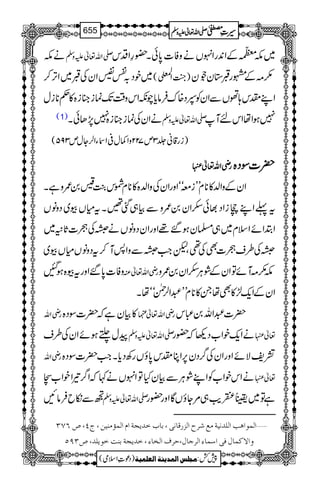 سیرتِ مصطفی صلی اللہ تعالیٰ علیہ وسلم 655
میں مکہ معظمہ کے اندر انہوں نے وفات پائی۔ حضور اقدس صلی اللہ تعالیٰ علیہ وسلم نے مکہ
مکرمہ کے مشہور قبرستان حجون (جنت المعلی) میں خود بہ نفس نفیس ان کی قبر میں اتر کر
اپنے مقدس ہاتھوں سے ان کو سپرد خاک فرمایا چونکہ اس وقت تک نماز جنازہ کا حکم نازل
نہیں ہوا تھا اس لئے آپ صلی اللہ تعالیٰ علیہ وسلم نے ان کی نماز جنازہ نہیں پڑھائی۔ (1)
(زرقانی جلد ۳ ص ۲۲۷ و اکمال فی اسماء الرجال ص ۵۹۳)
حضرت سودہ رضی اللہ تعالیٰ عنہا
ان کے والد کا نام ’’زمعہ‘‘ اور ان کی والدہ کا نام شموس بنت قیس بن عمرو ہے۔
یہ پہلے اپنے چچا زاد بھائی سکران بن عمرو سے بیاہی گئی تھیں۔ یہ میاں بیوی دونوں
ابتدائے اسلام میں ہی مسلمان ہو گئے تھے اور ان دونوں نے حبشہ کی ہجرت ثانیہ میں
حبشہ کی طرف ہجرت بھی کی تھی، لیکن جب حبشہ سے واپس آ کر یہ دونوں میاں بیوی
مکہ مکرمہ آئے تو ان کے شوہر سکران بن عمرو رضی اللہ تعالیٰ عنہ وفات پا گئے اور یہ بیوہ ہو گئیں
ان کے ایک لڑکا بھی تھا جن کا نام ’’عبدالرحمن‘‘ تھا۔
حضرت عبداللہ بن عباس رضی اللہ تعالیٰ عنہما کا بیان ہے کہ حضرت سودہ رضی اللہ
تعالیٰ عنہا نے ایک خواب دیکھا کہ حضور صلی اللہ تعالیٰ علیہ وسلم پیدل چلتے ہوئے ان کی طرف
تشریف لائے اور ان کی گردن پر اپنا مقدس پاؤں رکھ دیا۔ جب حضرت سودہ رضی اللہ
تعالیٰ عنہا نے اس خواب کو اپنے شوہر سے بیان کیا تو انہوں نے کہا کہ اگر تیرا خواب سچا
ہے تو میں یقیناً عنقریب ہی مر جاؤں گا اور حضور صلی اللہ تعالیٰ علیہ وسلم تجھ سے نکاح فرمائیں
......المواهب اللدنية مع شرح الزرقانی ، باب خديجة ام المؤمنین ، ج٤، ص ٣٧٦
والاكمال فی اسماء الرجال،حرف الخاء، خديجة بنت خويلد، ص٥٩٣
پیش کش: مجلس المدینة العلمیة (دعوتِ اسلامی)